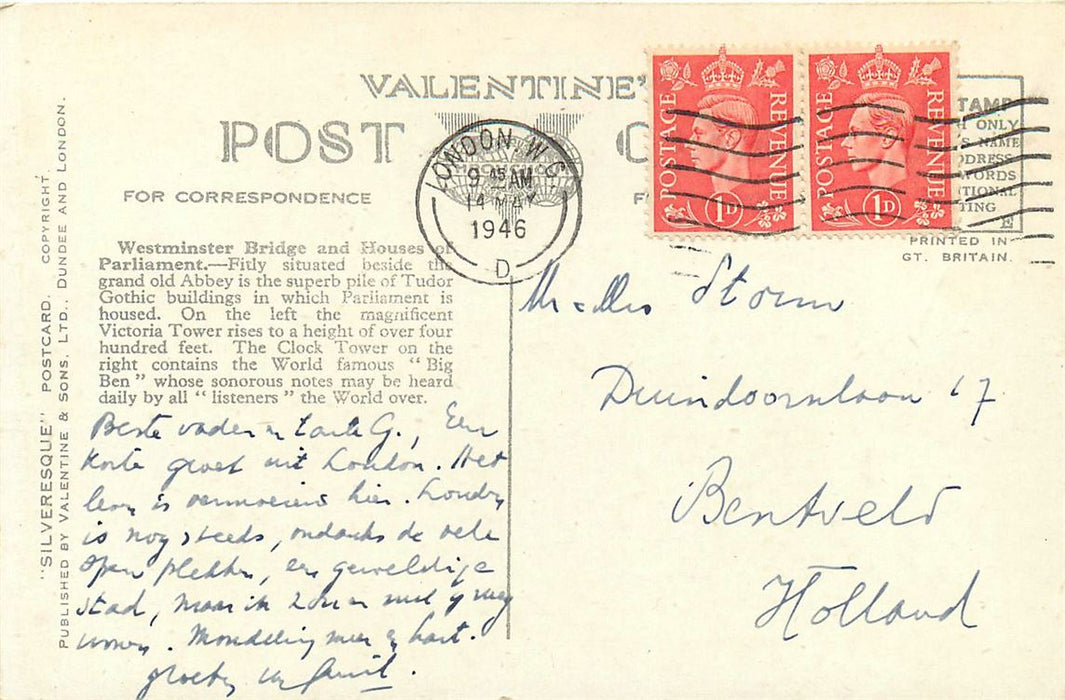 VALENTINE'
POST C
FOR CORRESPONDENCE
F
POSTAGE REVENUE
1D
POSTAGE REVENUE
1D
LONDON W.
9 45 AM
14 MAY
1946
D
TAMP
ONLY
NAME
DDRESS
WORDS
TIONAL
TING
E
PRINTED IN
GT. BRITAIN.
"SILVERESQUE" POSTCARD. COPYRIGHT.
PUBLISHED BY VALENTINE & SONS, LTD., DUNDEE AND LONDON.
Westminster Bridge and Houses of
Parliament.—Fitly situated beside the
grand old Abbey is the superb pile of Tudor
Gothic buildings in which Parliament is
housed. On the left the magnificent
Victoria Tower rises to a height of over four
hundred feet. The Clock Tower on the
right contains the World famous "Big
Ben" whose sonorous notes may be heard
daily by all "listeners" the World over.
Beste vader en tante G., Een
korte groet uit London. Het
leven is vermoeiend hier. London
is nog steeds, ondanks de vele
open plekken, een geweldige
stad, maar ik zou er niet graag
wonen. Mondeling meer
groeten
Mr & Mrs Storm
Duindoornlaan 17
Bentveld
Holland